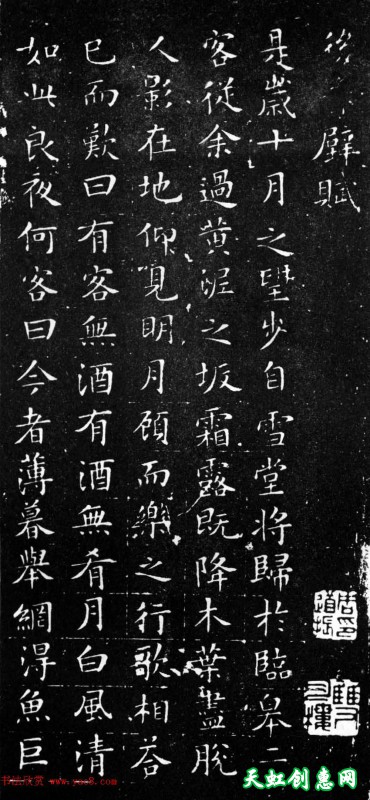 後壁賦
是歲十月之望步自雪堂將歸於臨皋二
客從余過黃泥之坂霜露既降木葉盡脫
人影在地仰見明月顧而樂之行歌相答
已而歎曰有客無酒有酒無肴月白風清
如此良夜何客曰今者薄暮舉網得魚巨
周印道振
书法欣赏 www.yac8.com
天虹创意网